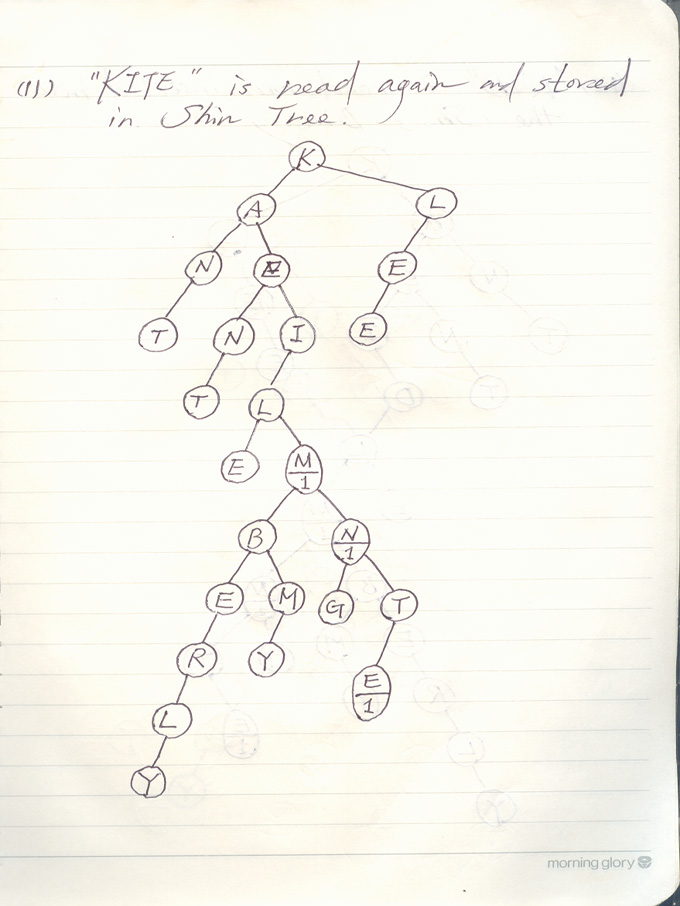 (11) "KITE" is read again and stored
in Shin Tree.
K
A L
N E E
T N I E
T L
E M
1
B N
1
E M G T
R Y E
1
L
Y
morning glory